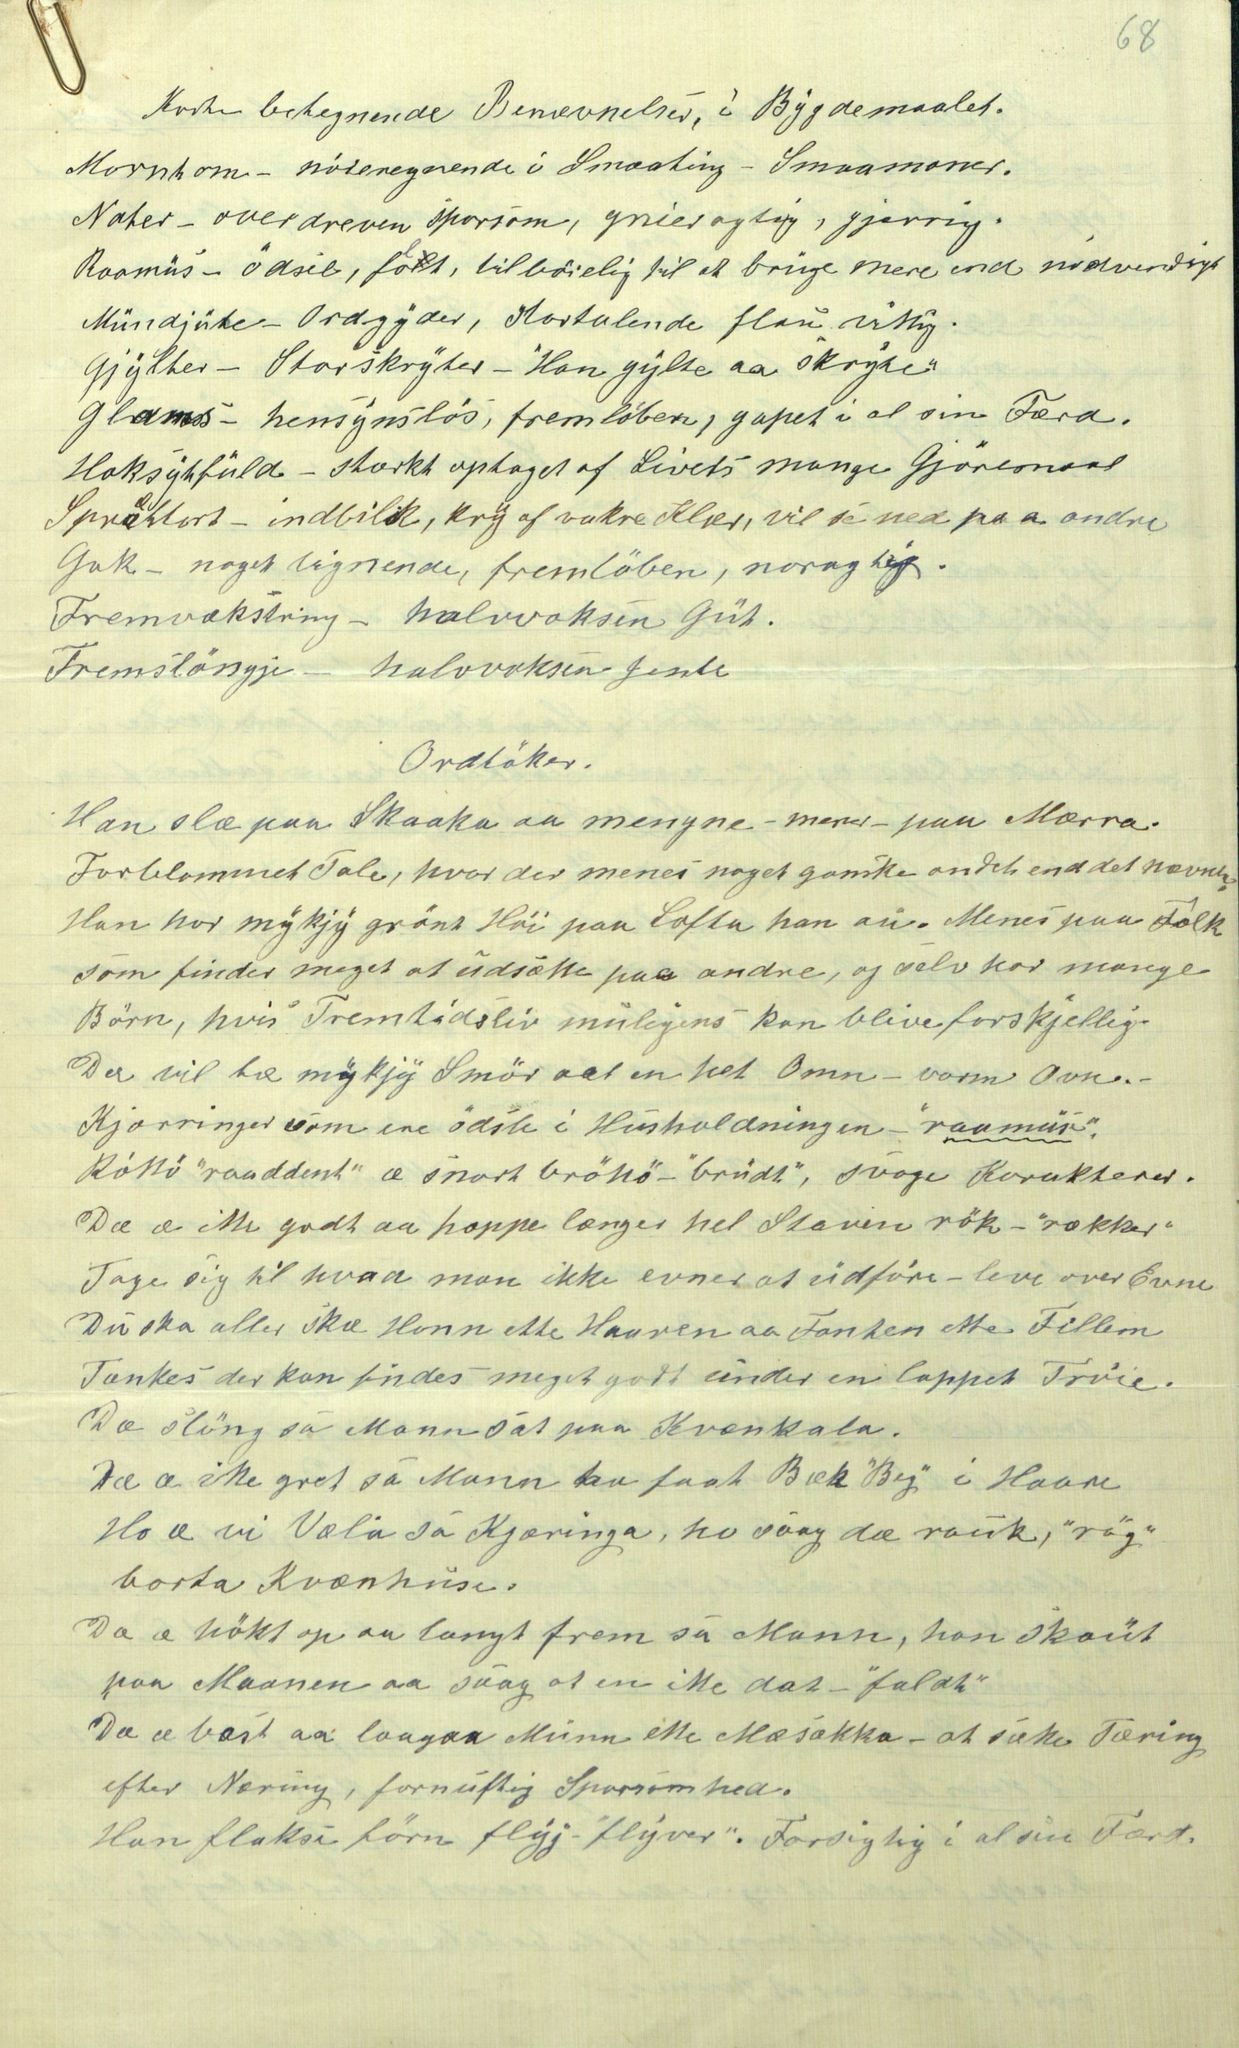 68
Korte betegnende Benævnelser, i Bygdemaalet.
Mornhom - nöieregnende i Smaating - Smaamoner.
Nater - overdreven sparsom, gnieragtig, gjerrig.
Raamüs - ödsel, flott, tilböielig til at brüge mere end nödvendigt
Mündjüke - Ordgyder, Stortalende flau vittig.
Gjylter - Storskryter - "Han gylte aa skryte"
Glams - hensynslös, fremlöben, gapet i al sin Færd.
Haksythüld - stærkt optaget af Livets mange Gjöremaal
Sprættort - indbilsk, kry af vakre Klær, vil se ned paa andre
Gak - noget lignende, fremlöben, naragtig.
Fremvækstring - halvvoksen Güt.
Fremslöngje - halvvoksen Jente
Ordtöker.
Han slæ paa Skaaka aa mengne - mener - paa Mærra.
Forblommet Tale, hvor der menes noget ganske andet end det nævnte
Han har mykjy grönt Höi paa Lofta han aü. Menes paa Folk
som finder meget at üdsætte paa andre, og selv har mange
Börn, hvis Fremtidsliv müligens kan blive forskjellig.
Dæ vil tæ mykjy Smör aat en het Omn - varm Ovn. -
Kjærringer som ere ödsle i Hüsholdningen - "raamüs".
Róttó "raaddent" æ snart bröttö - "brüdt", svage Karakterer.
Dæ æ itte godt aa hoppe længer hel Staven rök - "rækker"
Tage sig til hvad man ikke evner at üdföre - leve over Evne
Dü ska aller skæ Honn ette Haaren aa Fanten ette Fillem
Tænkes der kan findes meget godt ünder en lappet Tröie.
Dæ slöng sa Mann sat paa Kvænkala.
Dæ æ itte gret sa Mann ha faat Bæk "Beg" i Haare
Ho æ vi Væla sa Kjæringa, ho saag dæ raük, "rög"
borta Kvænhüse.
Dæ æ hökt op aa langt frem sa Mann, han skaüt
paa Maanen aa saag at en itte dat - "faldt"
Dæ æ bæst aa laagaa Münn ette Mæsækka - at sætte Tæring
efter Næring, fornüftig Sparsomhed.
Han flakse förn flyg - "flyver". Forsigtig i al sin Færd.